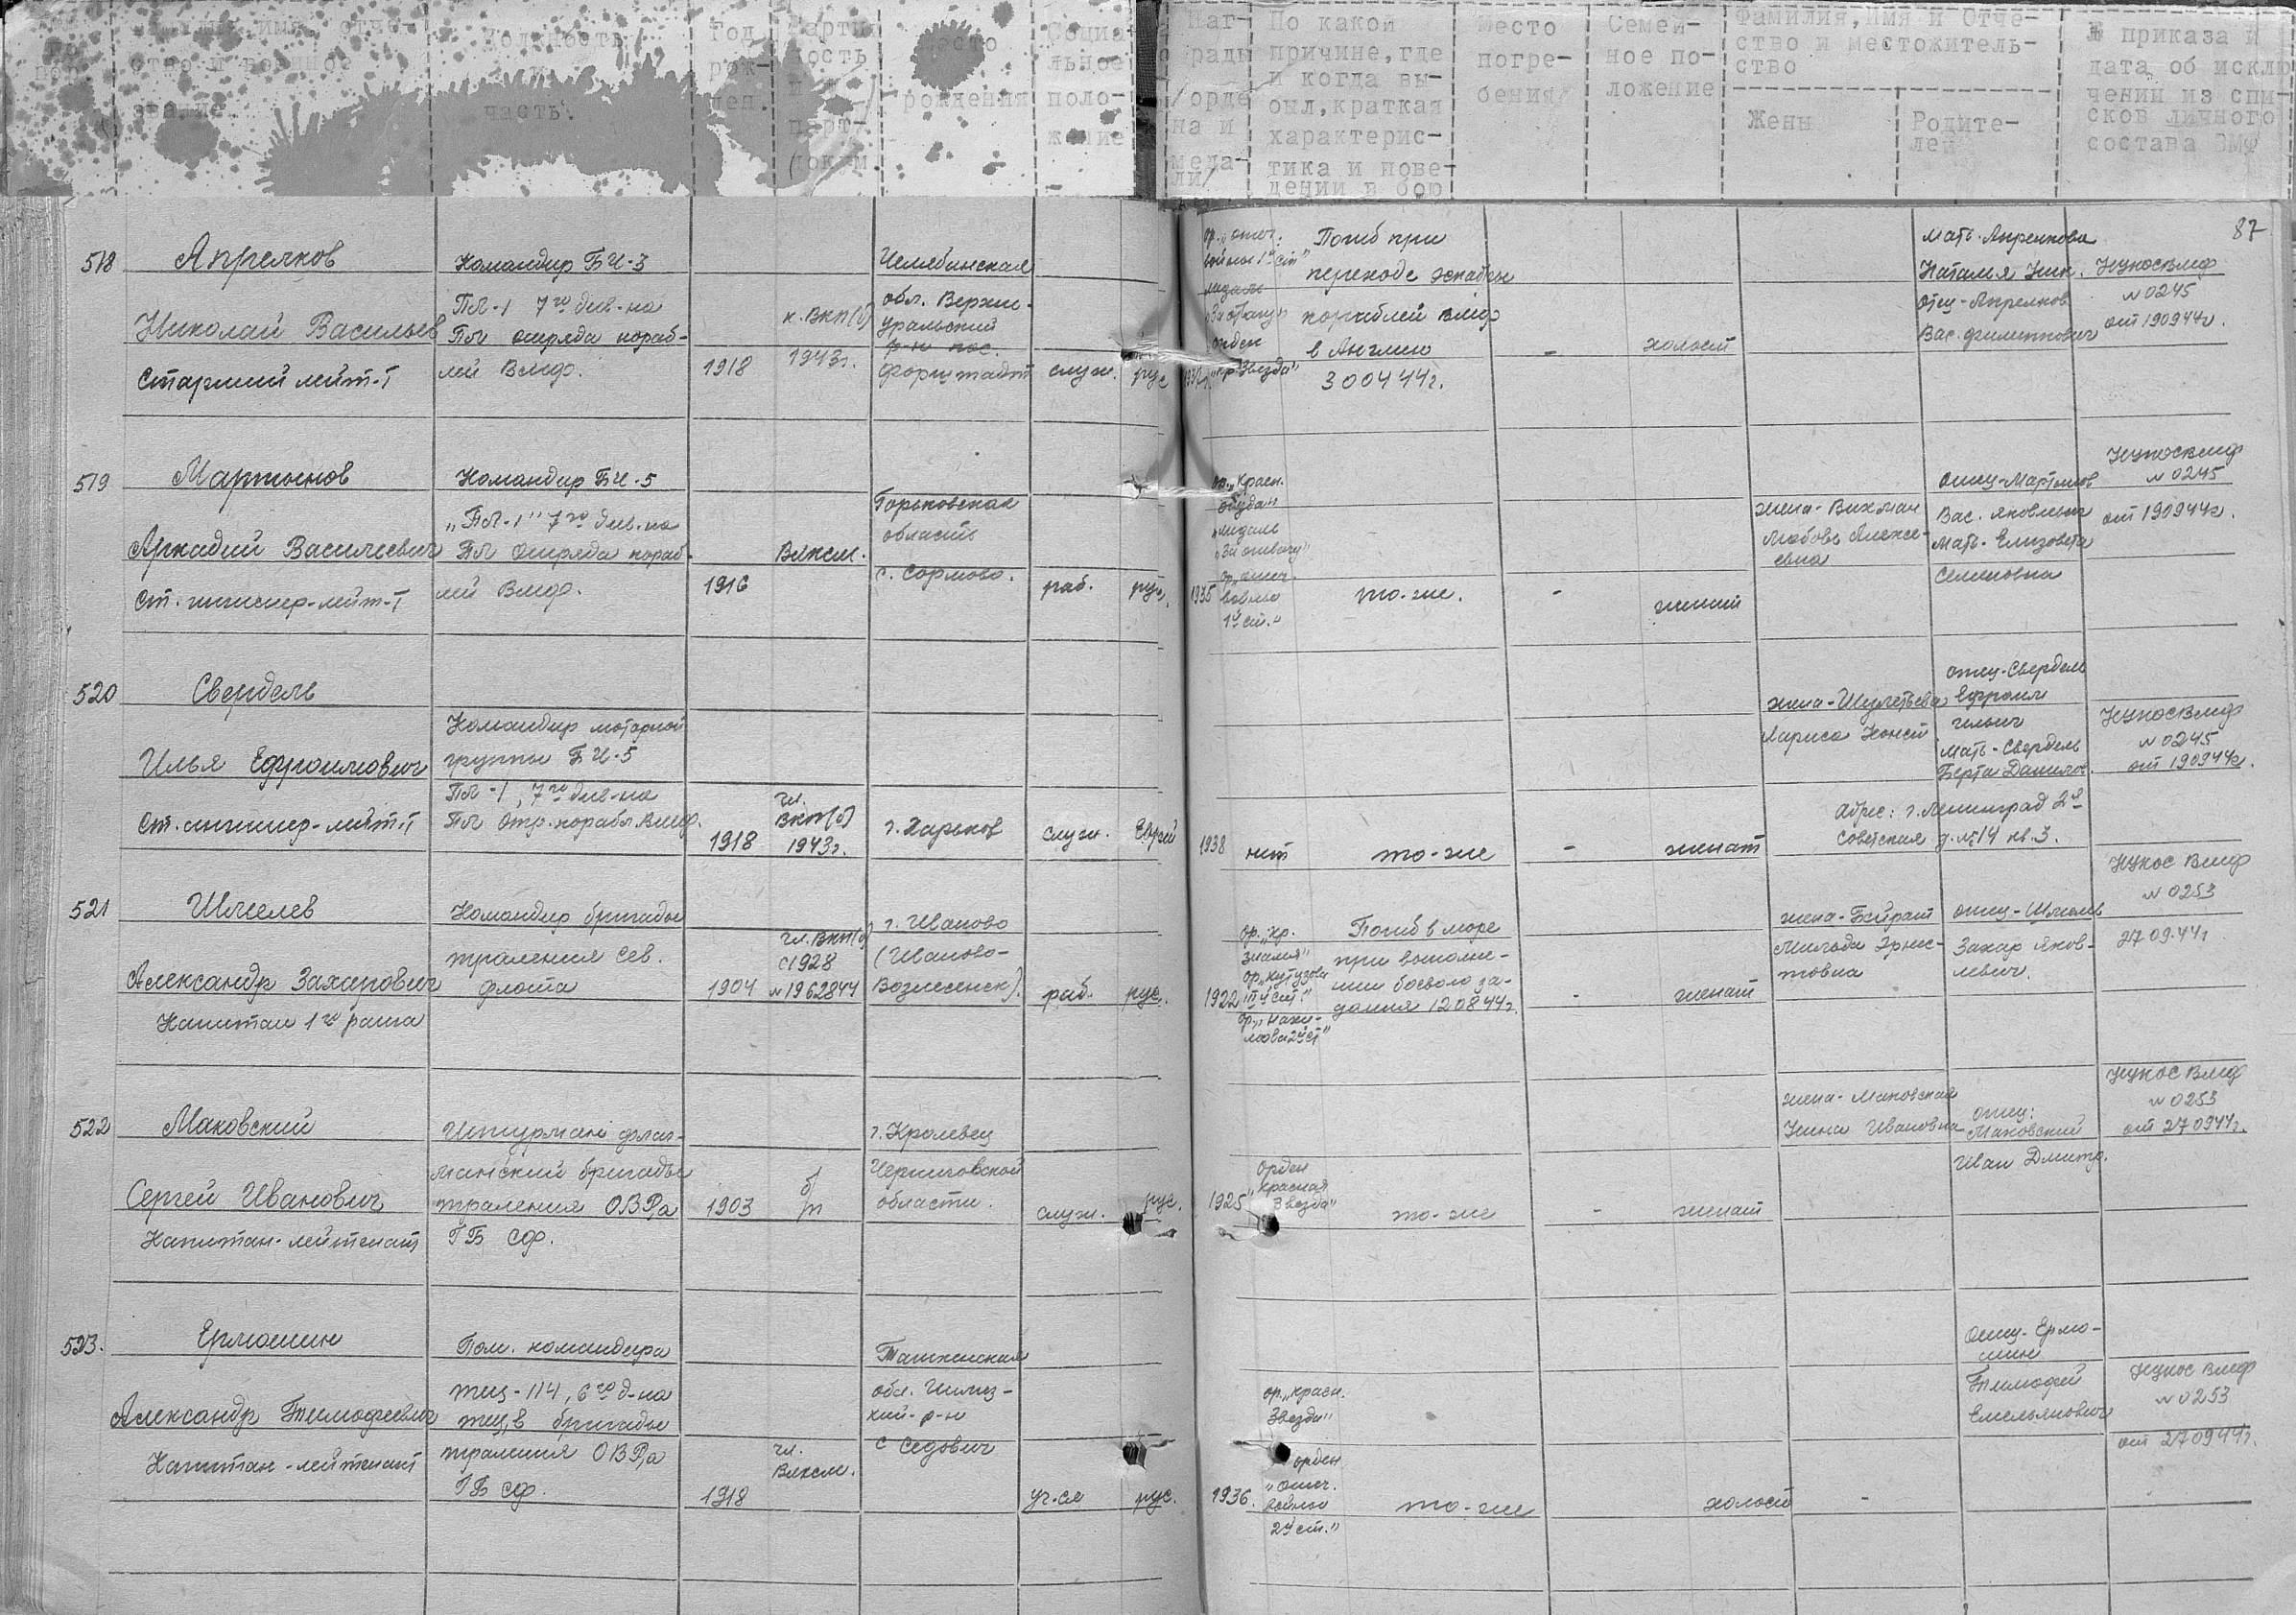 Год рож- ден.
Место рождения
Социа- льное поло- жение
Наг- рады /орде на и меда- ли/
По какой причине, где и когда вы- был, краткая характерис- тика и пове- дении в бою
Место погре- бения
Семей- ное по- ложение
Фамилия, Имя и Отче- ство и местожитель- ство
Жены
Родите- лей
№ приказа и дата об исклю чении из спи- сков личного состава ВМФ
87
518
Апрелков
Николай Васильев
Старший лейт-т
Командир БЧ-3
ПЛ-1 7го див-на
ПЛ отряда кораб-
лей ВМФ.
1918
к. ВКП(б)
1943г.
Челябинская
обл. Верхне-
уральский
р-н пос.
форштадт
служ.
рус
ор. "отеч.
войны 1й ст"
медаль
"За отвагу"
орден
"кр Звезда"
Погиб при
переходе эскадры
кораблей ВМФ
в Англии
300444г.
-
холост
Мать-Апрелкова
Наталья Ник.
Отец-Апрелков
Вас. Филиппович
НУКОСВМФ
№0245
от 190944г.
519
Мартынов
Аркадий Васильевич
Ст. инженер-лейт-т
Командир БЧ-5
"ПЛ-1" 7го див-на
ПЛ отряда кораб-
лей ВМФ.
1916
ВЛКСМ.
Горьковская
область
г. Сормово.
раб.
рус.
1935
ор. "Красн.
Звезда"
медаль
"За отвагу"
ор. "отеч.
войны
1й ст."
то-же.
-
женат
жена-Вихман
Любовь Алексе-
евна
отец-Мартынов
Вас. Яковлевич
Мать-Елизовета
Семеновна
НУКОСВМФ
№0245
от 190944г.
520
Свердель
Илья Ефроимович
Ст. инженер-лейт-т
Командир моторной
группы БЧ-5
ПЛ-1, 7го див-на
ПЛ Отр. корабл. ВМФ.
1918
чл.
ВКП(б)
1943г.
г. Харьков
служ.
Еврей
1938
нет
то-же
-
женат
Лариса
отец-Свердель
Ефроим
Ильич
Мать-Свердель
Берта Данилов.
Адрес: г. Ленинград 2я
Советская д. №14 кв. 3.
НУКОСВМФ
№0245
от 190944г.
521
Шмелев
Александр Захарович
Капитан 1го ранга
Командир бригады
траления Сев.
флота
1904
чл. ВКП(б)
с 1928
№1962844
г. Иваново
(Иваново-
Вознесенск).
раб.
рус.
1922
ор. "кр.
знамя"
ор. "кутузова
ст."
ор. "Нахи-
мова 2й ст"
Погиб в море
при выполне-
нии боевого за-
дания 120844г.
-
женат
Мильда Эрнес-
товна
отец-Шмелев
Захар Яков-
левич.
НУКОС ВМФ
№0253
270944г
522
Маковский
Сергей Иванович
Капитан-лейтенант
Штурман флаг-
манский бригады
траления ОВРа
ГБ СФ.
1903
б/п
г. Кролевец
Черниговской
области.
служ.
рус.
1925
орден
"красная
Звезда"
то-же
-
женат
жена-Маковская
Нина Ивановна
отец:
Маковский
Иван Дмитр.
НУКОС ВМФ
№0253
от 270944г.
523.
Ермошин
Александр Тимофеевич
Капитан-лейтенант
Пом. командира
тщ-114, 6го д-на
тщ,в бригады
траления ОВРа
ГБ СФ.
1918
чл.
ВЛКСМ.
обл.
р-н
уч-ся
рус.
1936.
ор. "красн.
Звезды"
орден
"отеч.
войны
2й ст."
то-же
холост
-
Отец-Ермо-
шин
Тимофей
Емельянович
НУКОС ВМФ
№0253
от 270944г.